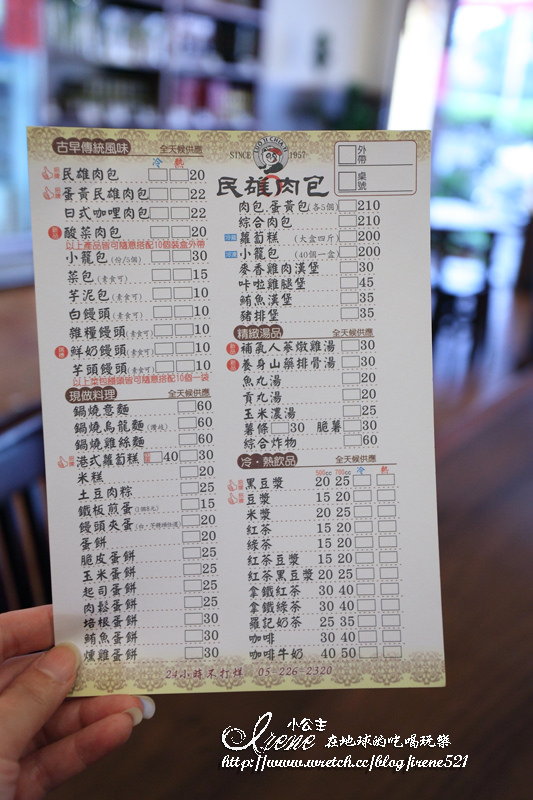 古早傳統風味 全天候供應
冷 熱
民雄肉包 20
蛋黃民雄肉包 22
日式咖哩肉包 22
酸菜肉包 20
以上產品皆可隨意搭配10個裝盒外帶
小籠包(份/5個) 30
菜包(素食可) 15
芋泥包(素食可) 10
白饅頭(素食可) 10
雜糧饅頭(素食可) 10
鮮奶饅頭(素食可) 10
芋頭饅頭(素食可) 10
以上菜包饅頭皆可隨意搭配10個一袋
現做料理 全天候供應
鍋燒意麵 60
鍋燒烏龍麵 60
鍋燒雞絲麵 60
港式蘿蔔糕 40 30
米糕 20
土豆肉粽 25
鐵板煎蛋 15
饅頭夾蛋 20
蛋餅 20
脆皮蛋餅 25
玉米蛋餅 25
起司蛋餅 25
肉鬆蛋餅 25
培根蛋餅 30
鮪魚蛋餅 30
燻雞蛋餅 30
SINCE 1957
民雄肉包
外帶
桌號
肉包.蛋黃包(各5個) 210
綜合肉包 210
蘿蔔糕 (大盒四斤) 200
小籠包 (40個一盒) 200
麥香雞肉漢堡 30
咔啦雞腿堡 45
鮪魚漢堡 35
豬排堡 35
精緻湯品 全天候供應
補氣人茶燉雞湯 30
養身山藥排骨湯 30
魚丸湯 20
貢丸湯 20
玉米濃湯 25
薯條 30 脆薯 30
綜合炸物 60
冷‧熱飲品 全天候供應
500cc 700cc 冷 熱
黑豆漿 20 25
豆漿 15 20
米漿 20 25
紅茶 15 20
綠茶 15 20
紅茶豆漿 15 20
紅茶黑豆漿 20 25
拿鐵紅茶 30 40
拿鐵綠茶 30 40
羅記奶茶 25 35
咖啡 30 40
咖啡牛奶 40 50
24小時不打烊 05-226-2320
小公主
Irene 在地球的吃喝玩樂
http://www.wretch.cc/blog/irene521